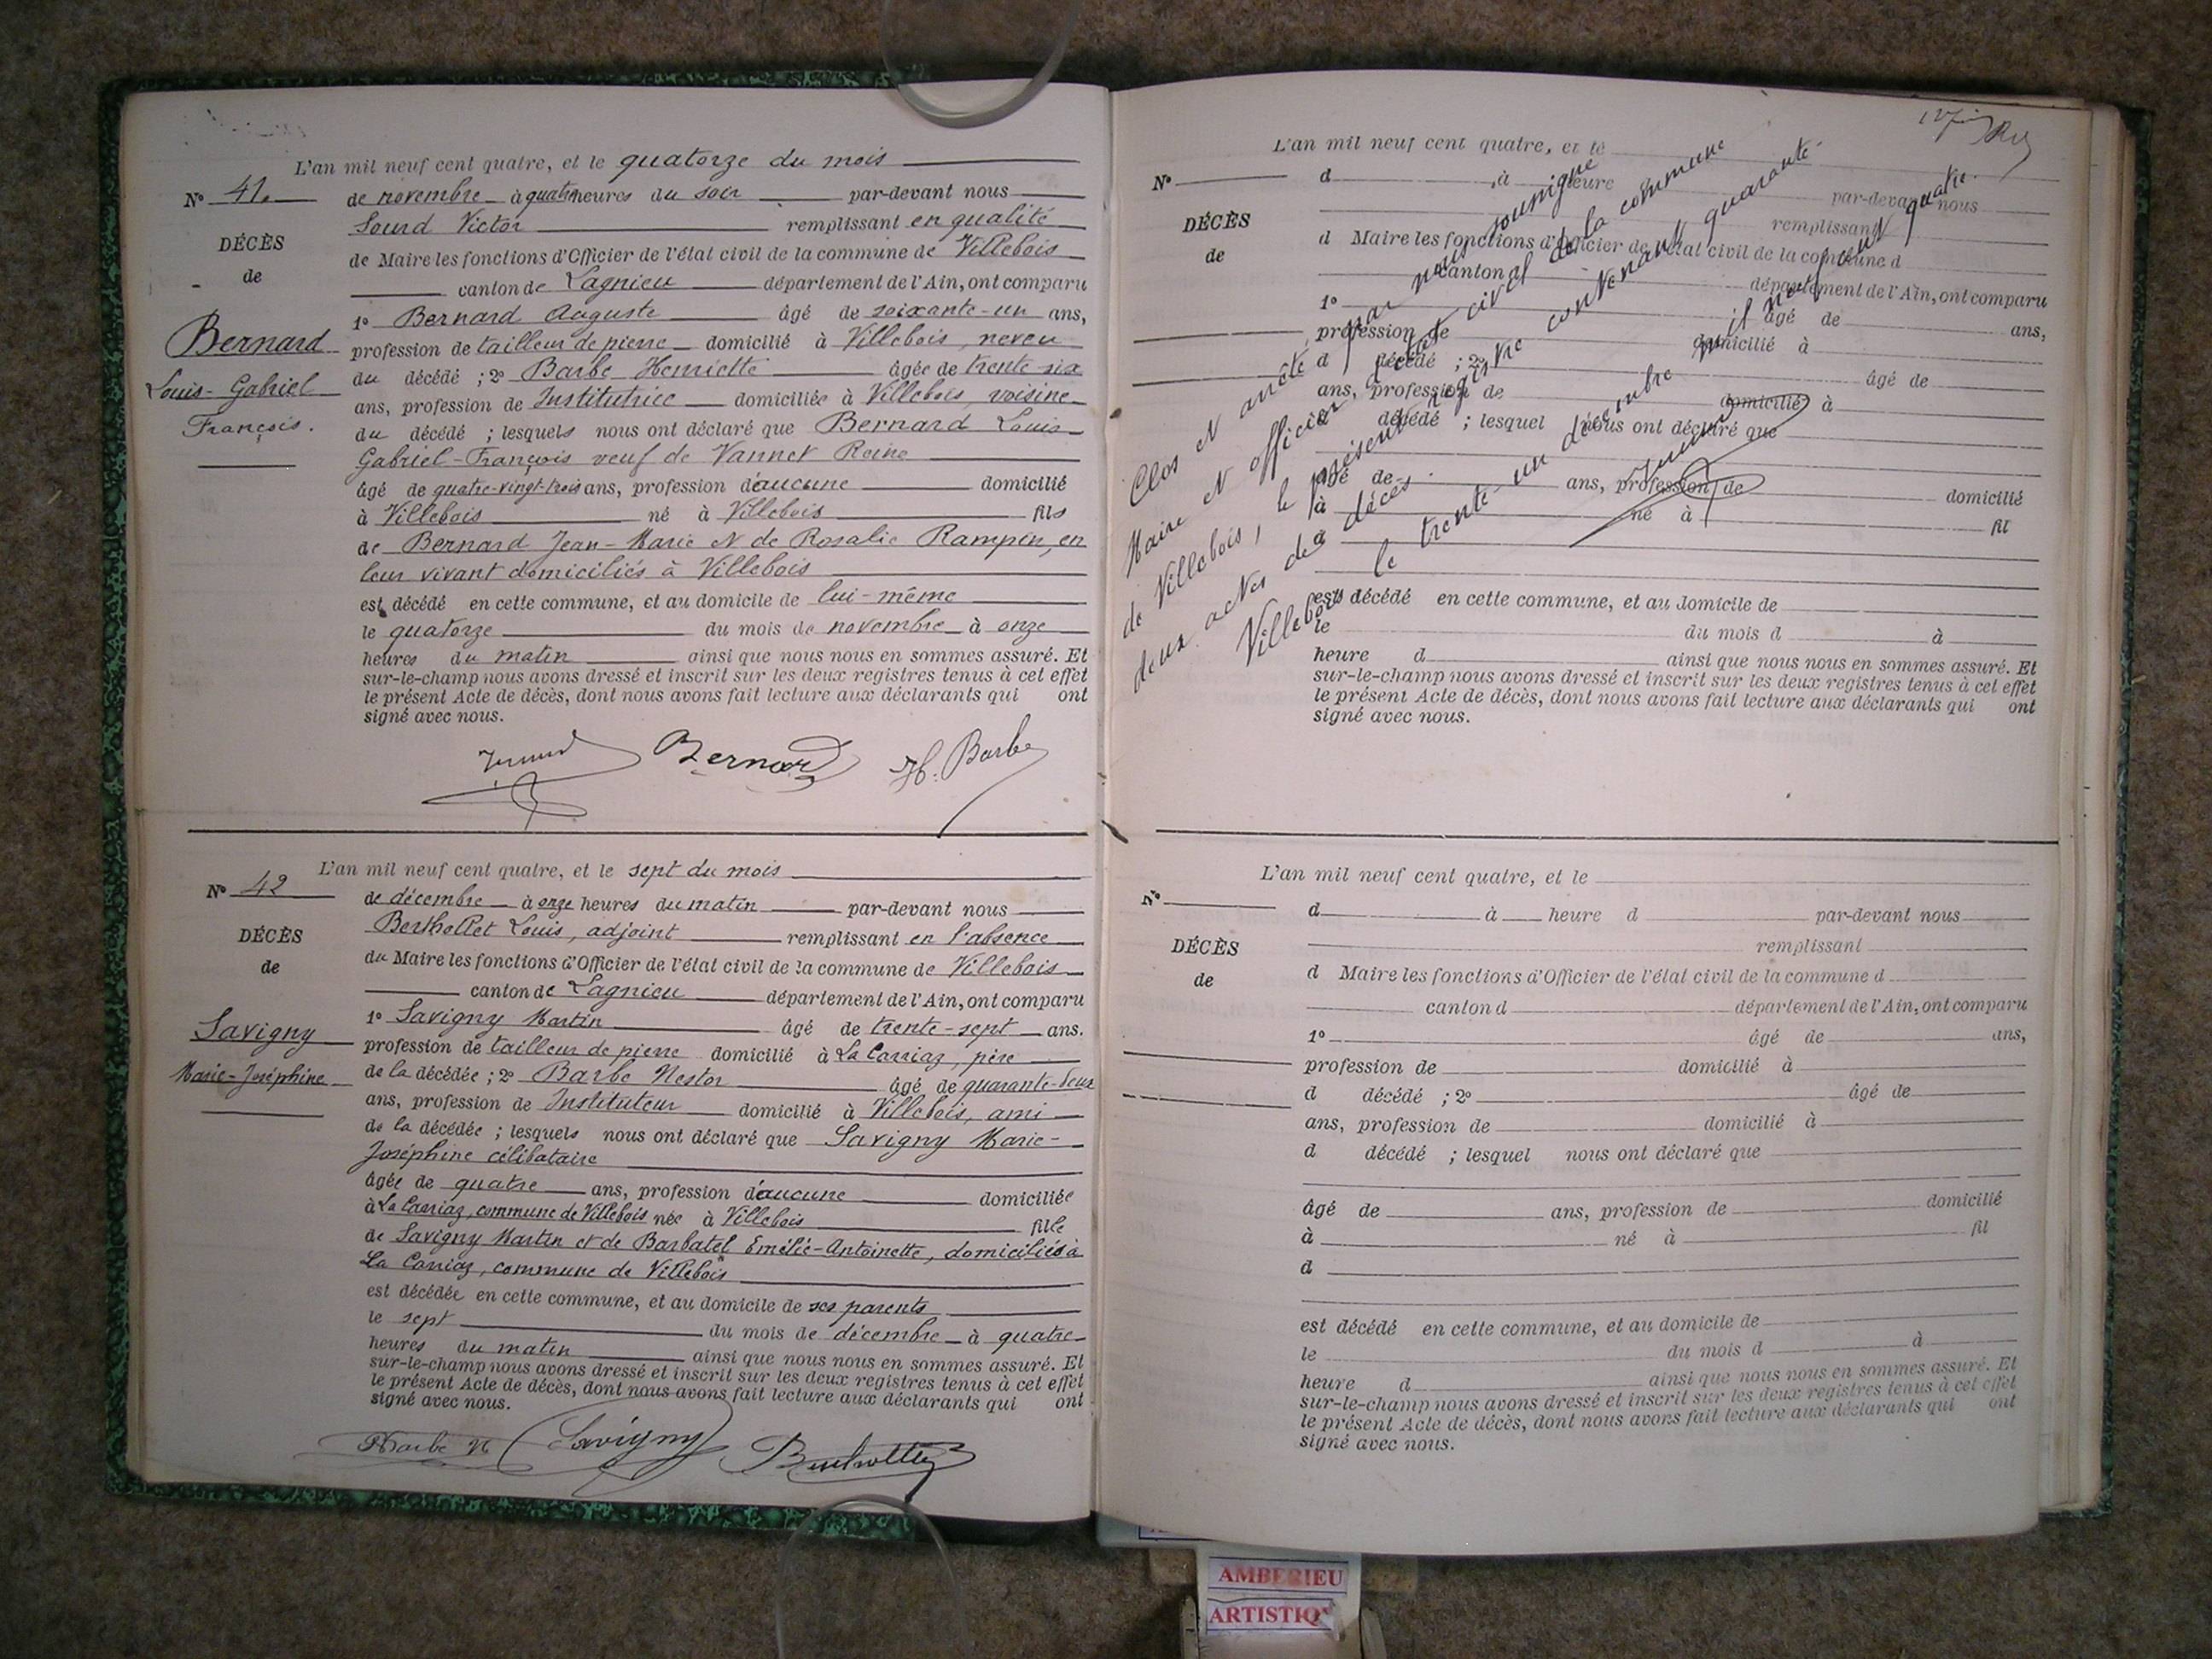 L'an mil neuf cent quatre, et le quatorze du mois
N° 41. de novembre à quatre heures du soir par-devant nous
Sourd Victor remplissant en qualité
DÉCÈS
de Maire les fonctions d'Officier de l'état civil de la commune de Villebois
de
canton de Lagnieu département de l'Ain, ont comparu
1° Bernard Auguste âgé de soixante-un ans,
Bernard
profession de tailleur de pierre domicilié à Villebois, neveu
du décédé ; 2° Barbe Henriette âgée de trente-six
Louis-Gabriel
ans, profession de Institutrice domiciliée à Villebois, voisine
François.
du décédé ; lesquels nous ont déclaré que Bernard Louis-
Gabriel-François veuf de Vannet Reine
âgé de quatre-vingt-trois ans, profession d'aucune domicilié
à Villebois né à Villebois fils
de Bernard Jean-Marie et de Rosalie Rampin, en
leur vivant domiciliés à Villebois
est décédé en cette commune, et au domicile de lui-même
le quatorze du mois de novembre à onze
heures du matin ainsi que nous nous en sommes assuré. Et
sur-le-champ nous avons dressé et inscrit sur les deux registres tenus à cet effet
le présent Acte de décès, dont nous avons fait lecture aux déclarants qui ont
signé avec nous.
Bernard H. Barbe
L'an mil neuf cent quatre, et le sept du mois
N° 42
de décembre à onze heures du matin par-devant nous
Berthollet Louis, adjoint remplissant en l'absence
DÉCÈS
du Maire les fonctions d'Officier de l'état civil de la commune de Villebois
de
canton de Lagnieu département de l'Ain, ont comparu
1° Savigny Martin âgé de trente-sept ans.
Savigny
profession de tailleur de pierre domicilié à La Carriaz, père
Marie-Joséphine
de la décédée ; 2° Barbe Nestor âgé de quarante-deux
ans, profession de Instituteur domicilié à Villebois, ami
de la décédée ; lesquels nous ont déclaré que Savigny Marie-
Joséphine célibataire
âgée de quatre ans, profession d'aucune domiciliée
à La Carriaz, commune de Villebois née à Villebois fille
de Savigny Martin et de Barbatel Emélie-Antoinette, domiciliés à
La Carriaz, commune de Villebois
est décédée en cette commune, et au domicile de ses parents
le sept du mois de décembre à quatre
heures du matin ainsi que nous nous en sommes assuré. Et
sur-le-champ nous avons dressé et inscrit sur les deux registres tenus à cet effet
le présent Acte de décès, dont nous avons fait lecture aux déclarants qui ont
signé avec nous.
Barbe N Savigny Berthollet
L'an mil neuf cent quatre, et le
N°
d à heure par-devant nous
remplissant
DÉCÈS
d Maire les fonctions d'Officier de l'état civil de la commune d
de
canton d département de l'Ain, ont comparu
1° âgé de ans,
profession de domicilié à
d décédé ; 2° âgé de
ans, profession de domicilié à
d décédé ; lesquel nous ont déclaré que
âgé de ans, profession de domicilié
à né à fil
d
est décédé en cette commune, et au domicile de
le du mois d à
heure d ainsi que nous nous en sommes assuré. Et
sur-le-champ nous avons dressé et inscrit sur les deux registres tenus à cet effet
le présent Acte de décès, dont nous avons fait lecture aux déclarants qui ont
signé avec nous.
Clos et arrêté par nous soussigné
Maire et officier de l'état civil de la commune
de Villebois, le présent registre contenant quarante-
deux actes de décès.
Villebois le trente-un décembre mil neuf cent quatre.
L'an mil neuf cent quatre, et le
N°
d à heure d par-devant nous
remplissant
DÉCÈS
d Maire les fonctions d'Officier de l'état civil de la commune d
de
canton d département de l'Ain, ont comparu
1° âgé de ans,
profession de domicilié à
d décédé ; 2° âgé de
ans, profession de domicilié à
d décédé ; lesquel nous ont déclaré que
âgé de ans, profession de domicilié
à né à fil
d
est décédé en cette commune, et au domicile de
le du mois d à
heure d ainsi que nous nous en sommes assuré. Et
sur-le-champ nous avons dressé et inscrit sur les deux registres tenus à cet effet
le présent Acte de décès, dont nous avons fait lecture aux déclarants qui ont
signé avec nous.
AMBERIEU
ARTISTIQ